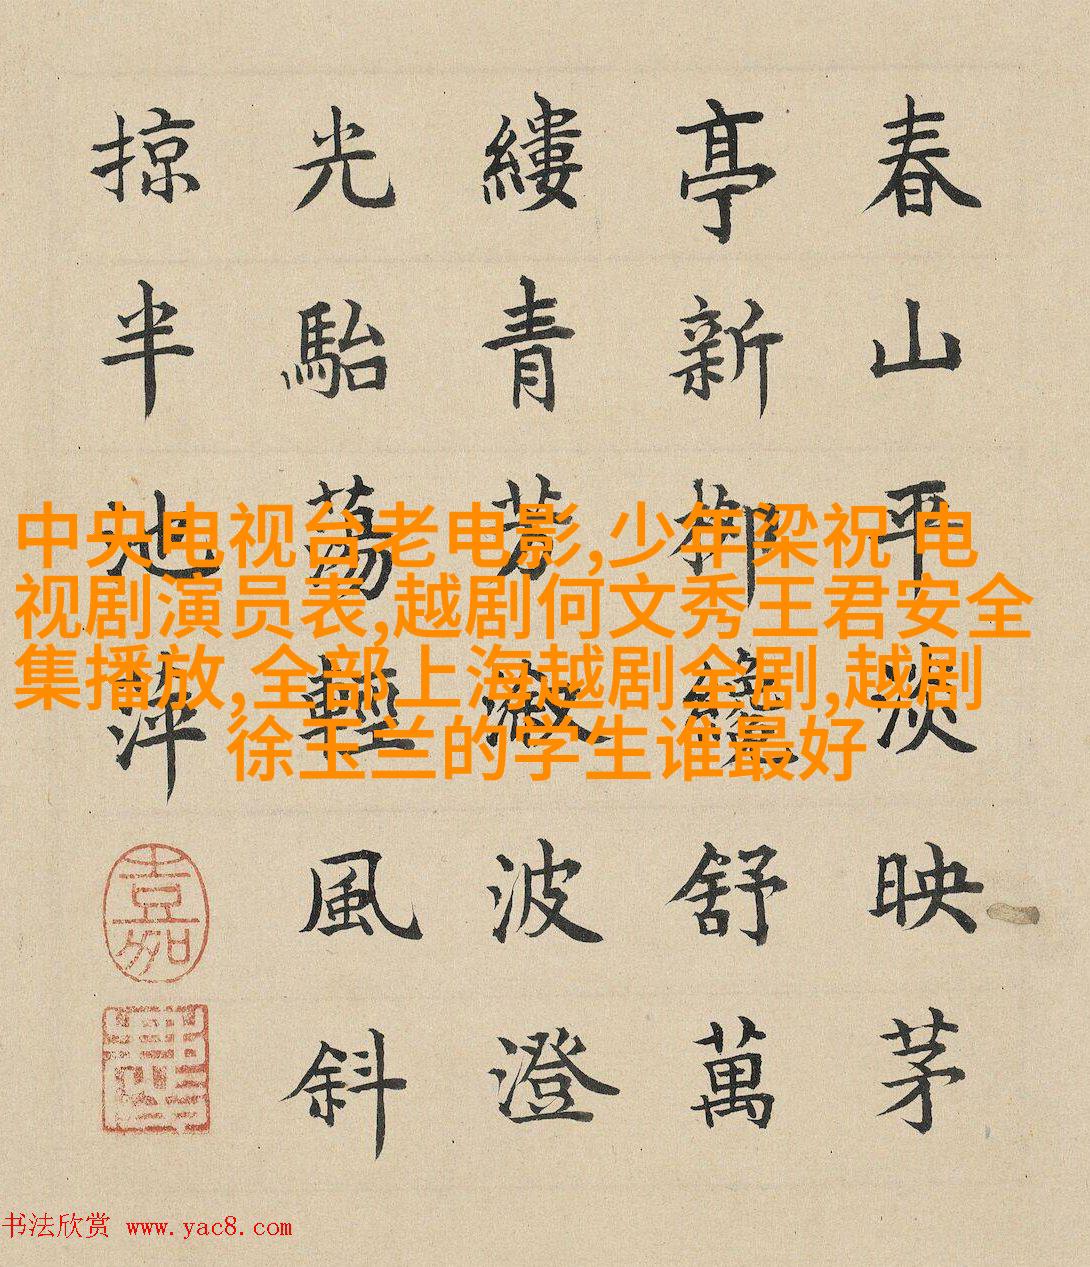 春山平淡映茅
亭新柳纔舒萬
縷青芳漵波澄
光駘蕩輕風斜
掠半池萍
嘉
中央电视台老电影,少年梁祝 电
视剧演员表,越剧何文秀王君安全
集播放,全部上海越剧全剧,越剧
徐玉兰的学生谁最好
书法欣赏 www.yac8.com